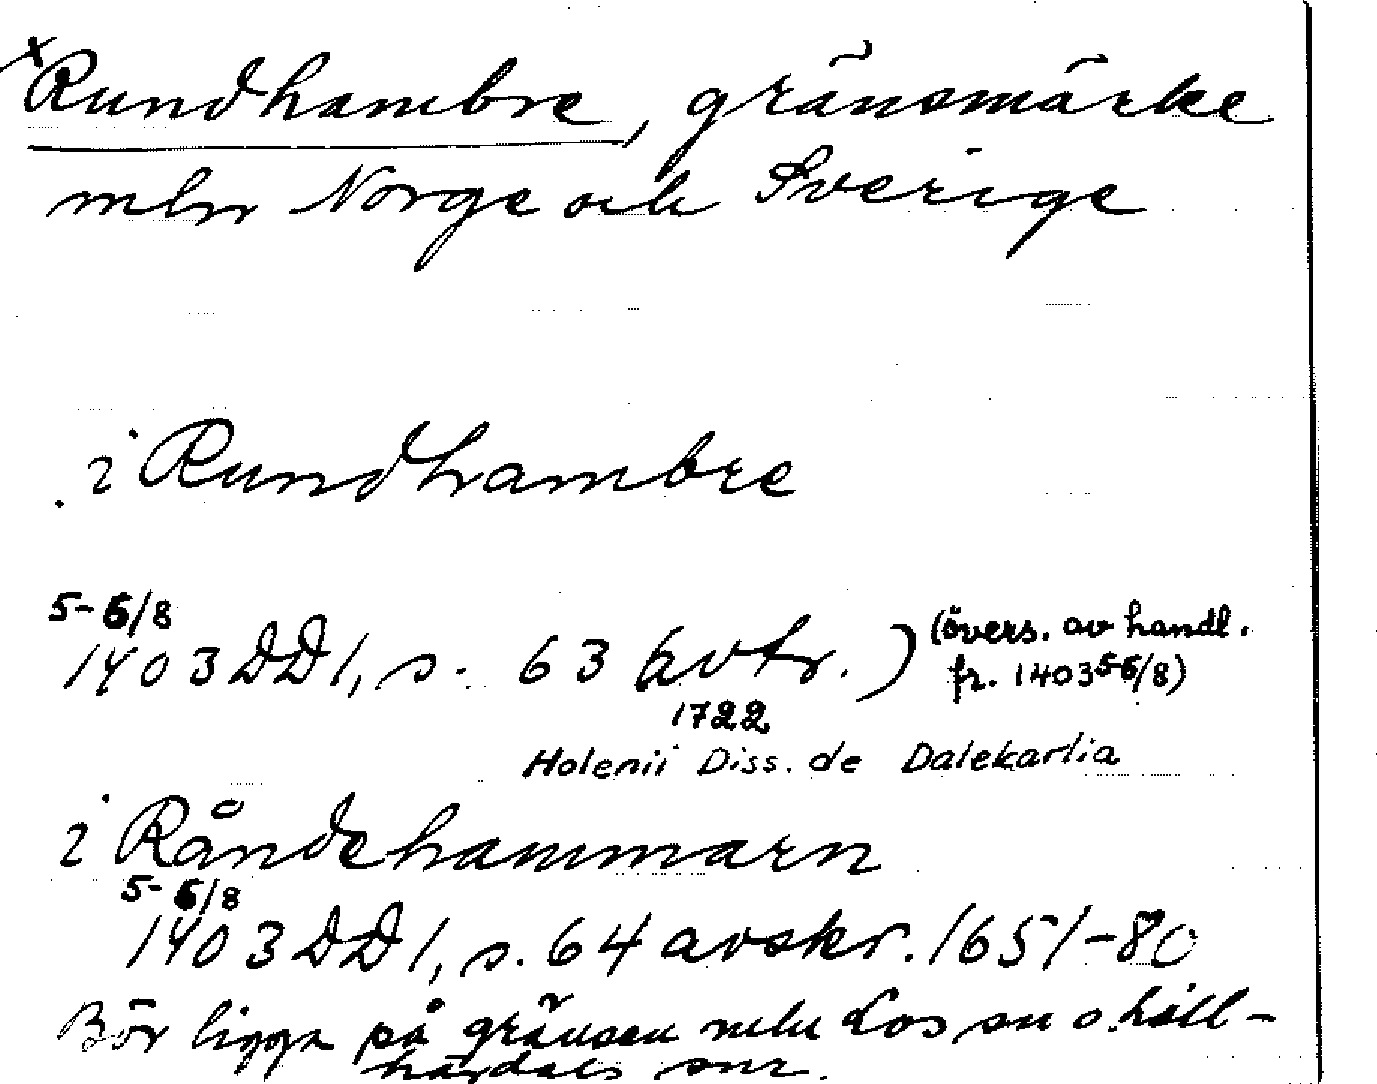 x Rundhambre, gränsmärke
mln Norge och Sverige
i Rundhambre
5-6/8
1403 DD1, s. 63 avtr. ) (övers. av handl.
fr. 1403 5-6/8)
1722
Holenii Diss. de Dalekarlia
i Råndehammarn
5-6/8
1403 DD1, s. 64 avskr. 1651-80
Bör ligga på gränsen mln Los sn o. Häll-
hardals snr.